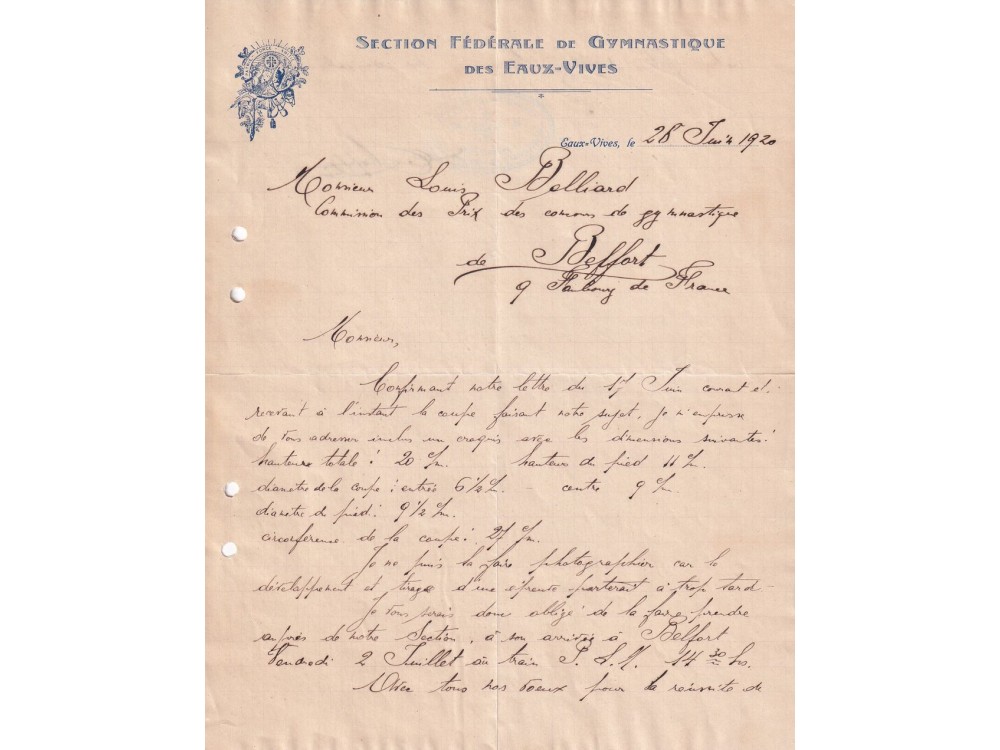 SECTION FÉDÉRALE DE GYMNASTIQUE
DES EAUX-VIVES
Eaux-Vives, le 28 Juin 1920
Monsieur Louis Belliard
Commission des Prix des concours de gymnastique
de Belfort
9 Faubourg de France
Monsieur,
Confirmant notre lettre du 17 Juin courant et
recevant à l'instant la coupe faisant notre sujet, je m'empresse
de vous adresser inclus un croquis avec les dimensions suivantes:
hauteure totale: 20 c/m. hauteur du pied 11 c/m.
diamètre de la coupe: entrée 6 1/2 c/m. - centre 9 c/m.
diamètre du pied: 9 1/2 c/m.
circonférence de la coupe: 27 c/m.
Je ne puis la faire photographier car le
développement et tirage d'une épreuve porterait à trop tard -
Je vous serais donc obligé de la faire prendre
auprès de notre Section, à son arrivée à Belfort
Vendredi 2 Juillet au train P.L.M. 14 30 hrs.
Avec tous nos voeux pour la réussite de